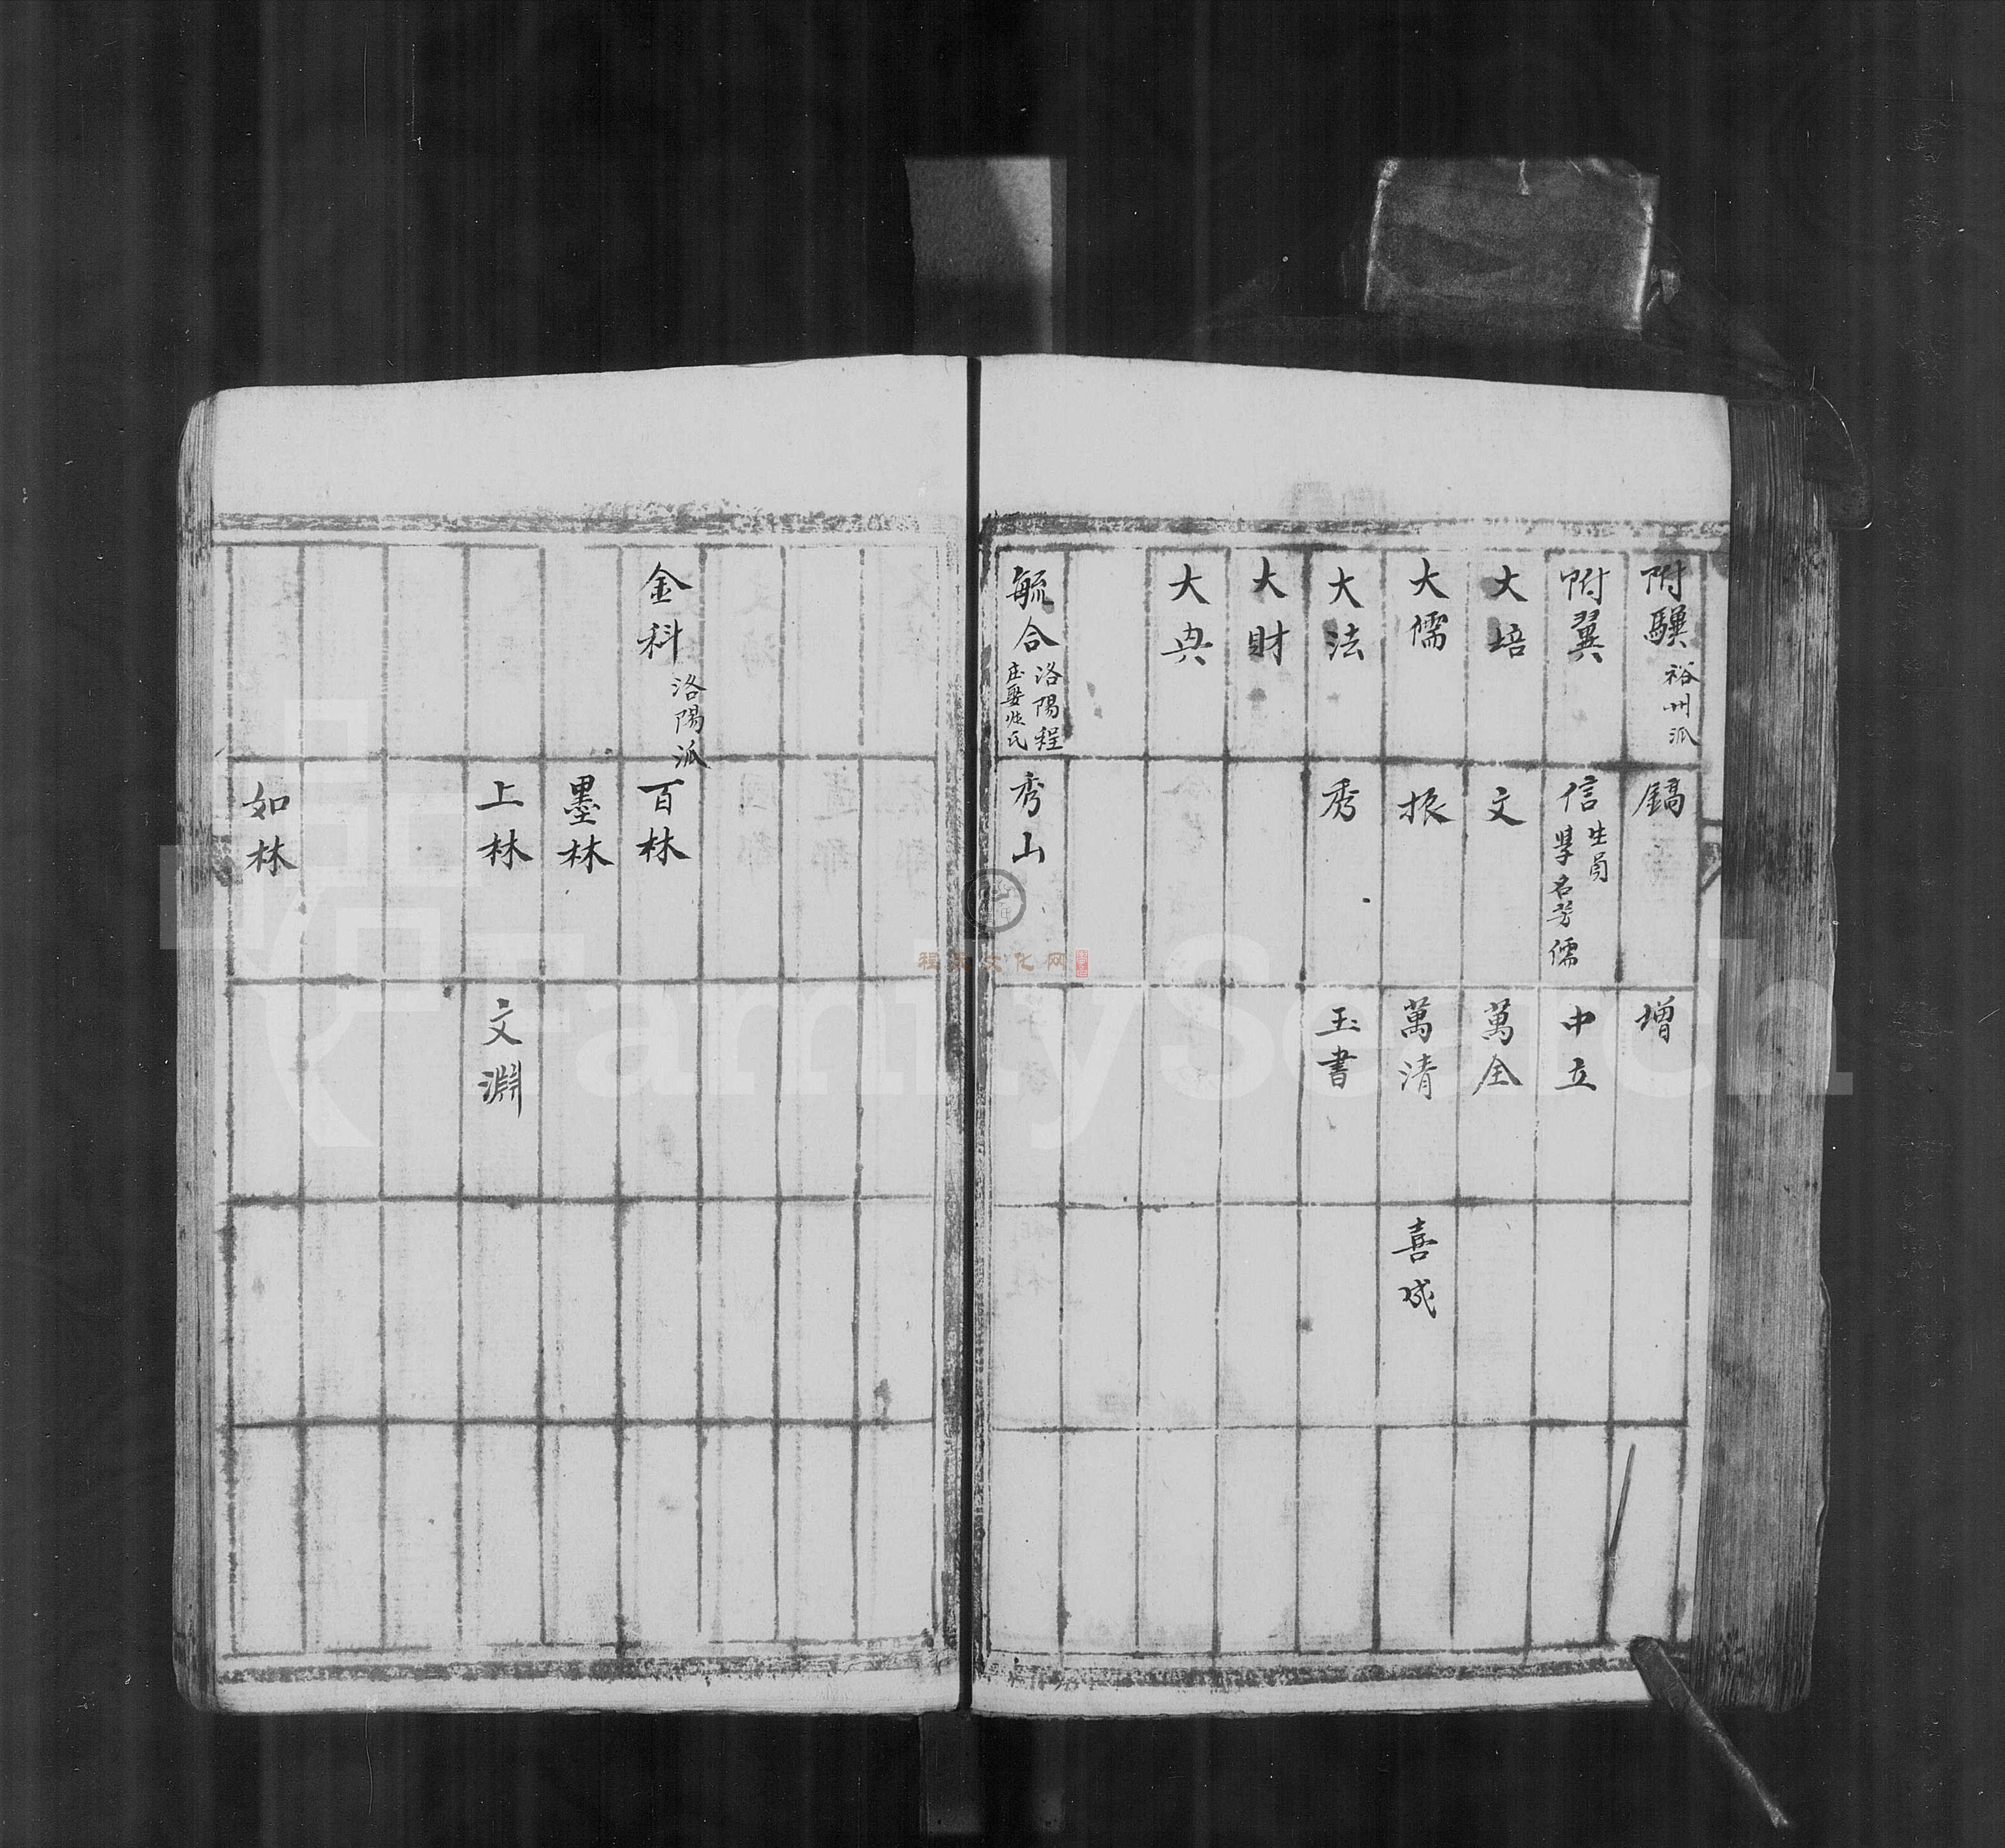 附驥 裕州派
附翼
大培
大儒
大法
大財
大典
毓合 洛陽程
庄娶 氏
鎬
信 生員
學名芳儒
文
振
秀
秀山
增
中立
萬全
萬清
玉書
喜成
金科 洛陽派
百林
墨林
上林
如林
文淵
FamilySearch
程氏文化网